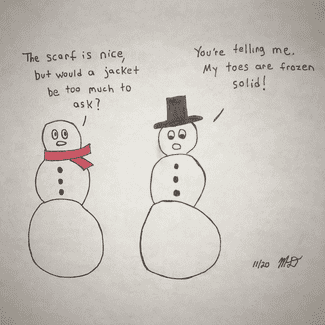 The scarf is nice,
but would a jacket
be too much to
ask?
You're telling me.
My toes are frozen
solid!
11/20